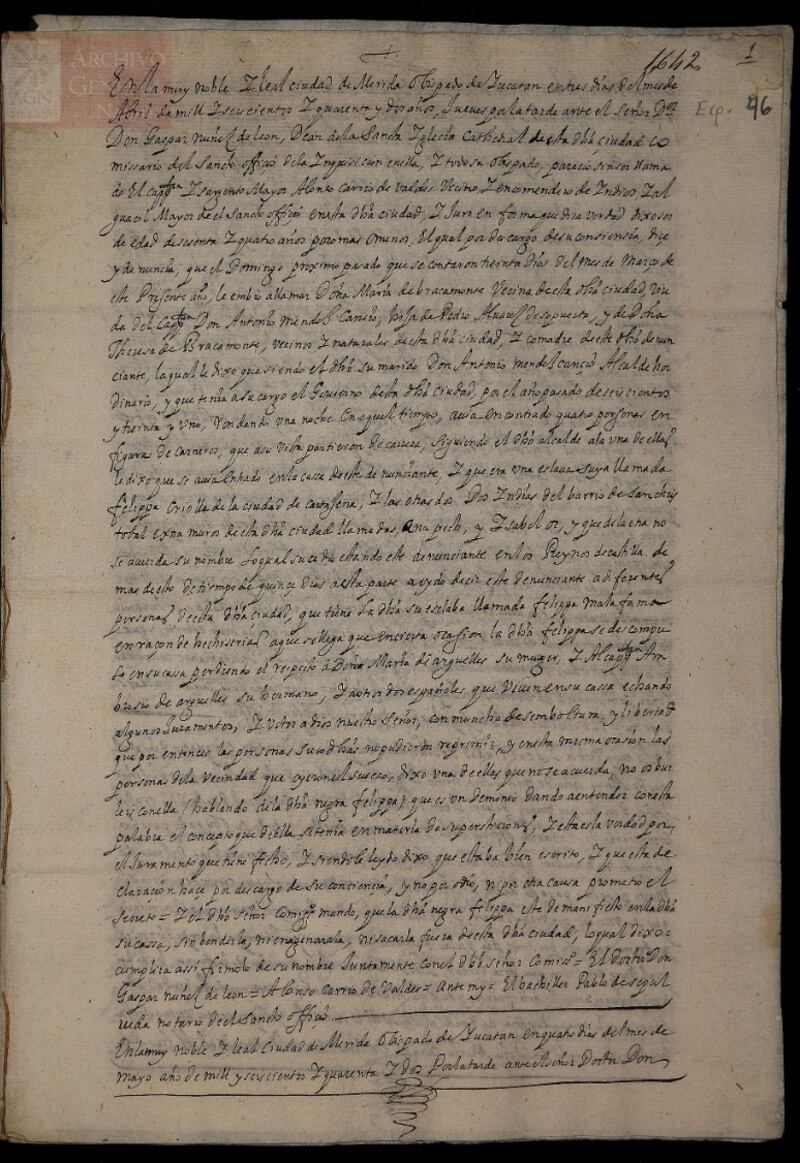 1642 1
Exp. 96
ARCHIVO
AGN
En la muy noble Y leal ciudad de Merida Obispado de Yucatan en tres dias del mes de
Abril de mill Y seiscientos Y quarenta y dos años, Jueves por la tarde ante el Señor Dor
Don Gaspar nuñez de leon, Dean de la Sancta Yglecia Cathedral de esta dha ciudad co
missario del Sancto officio de la Inquisicion en ella, Y todo su obispado, parecio sin ser llama
do El Cappan Y sargento Mayor Alonso Carrio de Valdes Vecino Y encomendero de Indios, Y al
guacil Mayor de el Sancto officio en esta dha ciudad, Y Juro en forma que dira verdad dixo ser
de edad de sesenta Y quatro años poco mas o menos, El qual por descargo de su consiensia, dize
y denuncia, que el Domingo proximo pasado que se contaron treinta dias del mes de Março de
este Presente año, le embio a llamar Doña Maria de bracamonte Vecina de esta dha ciudad, viu
da del Cappan Don Antonio mendez Canço, hija de Pedro Alvarez despuerto, y de Doña
Theresa de Bracamonte, vecinos Y naturales de esta dha ciudad, Y comadre de este dho denun
ciante, la qual le dixo que siendo el dho su marido Don Antonio mendez canço Alcalde hor
dinario, y que tenia a su cargo el Govierno desta dha ciudad, por el año pasado de seiscientos
y treinta y Uno, Rondando vna noche En aquel tiempo, avia encontrado quatro personas en
figuras de carneros, que a su vista partieron de carrera, siguiendo el dho alcalde a la vna de ellas
le dixo que se avia entrado en la cassa de este denunciante, Y que era vna esclava suya llamada
felippa Criolla de la ciudad de cartagena, Y las otras dos Dos Indias del barrio de San chris
tobal extra muros de esta dha ciudad llamadas, Ana pech, y Ysabel oc, y que de la otra no
se acuerda su nombre lo qual sucedio estando este denunciante en los Reynos de castilla. de
mas de esto de tiempo de quince dias a esta parte a oydo decir este denunciante a diferentes
personas de esta dha ciudad, que tiene la dha su esclaba llamada felippa mala fama
en raçon de hechiserias a que se llega que en cierta ocasion la dha felippa se descompu
so en su cassa perdiendo el respecto a Doña Maria de arguelles su muger, Y Al cappan Am
brosio de arguelles su hermano, Y a otros dos españoles que viven en su cassa echando
algunos Juramentos, Y votos a dios nuestro Señor, con muncha desemboltura, y libertad
que por entonces las personas susodhas no pudieron reprimir, y en esta misma ocasión las
personas de la vecindad que oyeron el suceso, dixo vna de ellas que no se acuerda, no os bur
leis con ella (hablando de la dha negra felippa) que es vn demonio dando a entender con esta
palabra el concepto que de ella se tenia en materia de supersticiones, Y esta es la verdad por
el Juramento que tiene fecho, Y siendole leydo dixo que estaba bien escrito, Y que esta de
claracion hace por descargo de su conciencia, y no por odio, ni por otra causa prometio el
secreto = Y el dho señor Comisso mando, que la dha negra felippa este de manifiesto en la dha
su cassa, sin benderla, ni enagenarla, ni sacarla fuera de esta dha ciudad, lo qual dixo
cumplira assi firmolo de su nombre Juntamente con el dho señor Comiso = El Doctor Don
Gaspar nuñez de leon = Alonso Carrio de Valdes = Ante my = El bachiller Pablo de sepul
veda notario de el Sancto officio
En la muy noble Y leal Ciudad de Merida Obispado de Yucatan en quatro dias del mes de
mayo año de mill y seiscientos Y quarenta Y dos Por la tarde ante el Señor Doctor Don